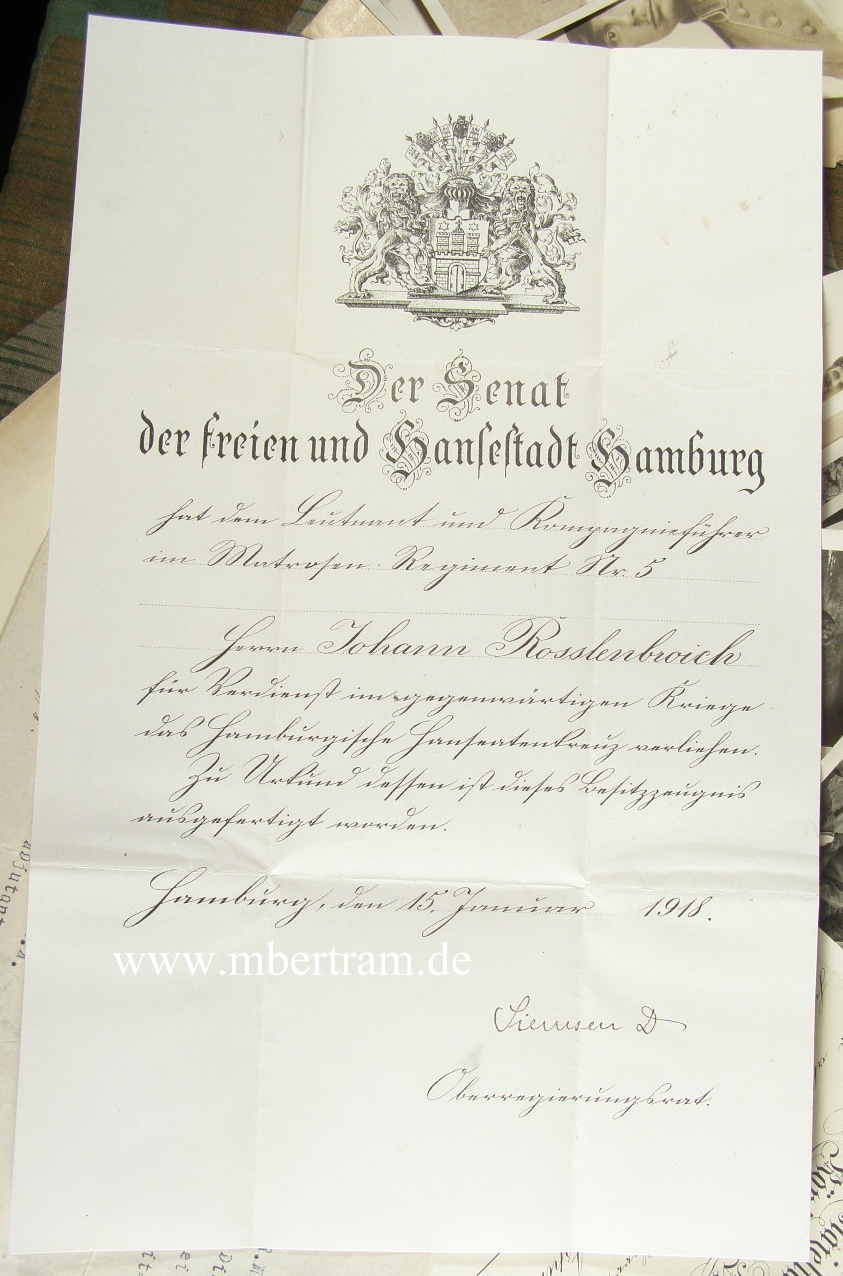 Der Senat
der freien und Hansestadt Hamburg
hat dem Leutnant und Kompagnieführer
im Matrosen-Regiment Nr. 5
Herrn Johann Rosslenbroich
für Verdienst im gegenwärtigen Kriege
das Hamburgische Hanseatenkreuz verliehen.
Zu Urkund dessen ist dieses Besitzzeugnis
ausgefertigt worden.
Hamburg, den 15. Januar 1918.
www.mbertram.de
Siemsen D
Oberregierungsrat.